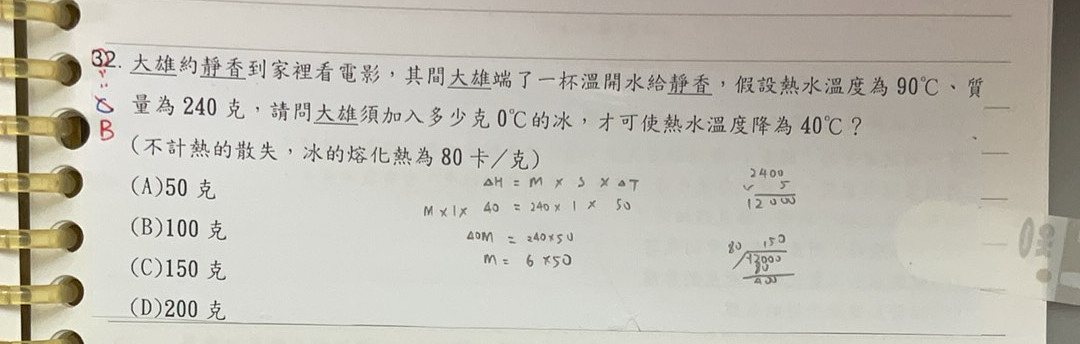 32. 大雄約靜香到家裡看電影，其間大雄端了一杯溫開水給靜香，假設熱水溫度為90℃、質
量為240克，請問大雄須加入多少克0℃的冰，才可使熱水溫度降為40℃？
B
（不計熱的散失，冰的熔化熱為80卡／克）
(A)50 克
(B)100 克
(C)150 克
(D)200 克
ΔH = M × S × ΔT
M×1× 40 = 240×1× 50
40M = 240×50
M = 6×50
2400
× 5
12000
150
80
12000
80
400